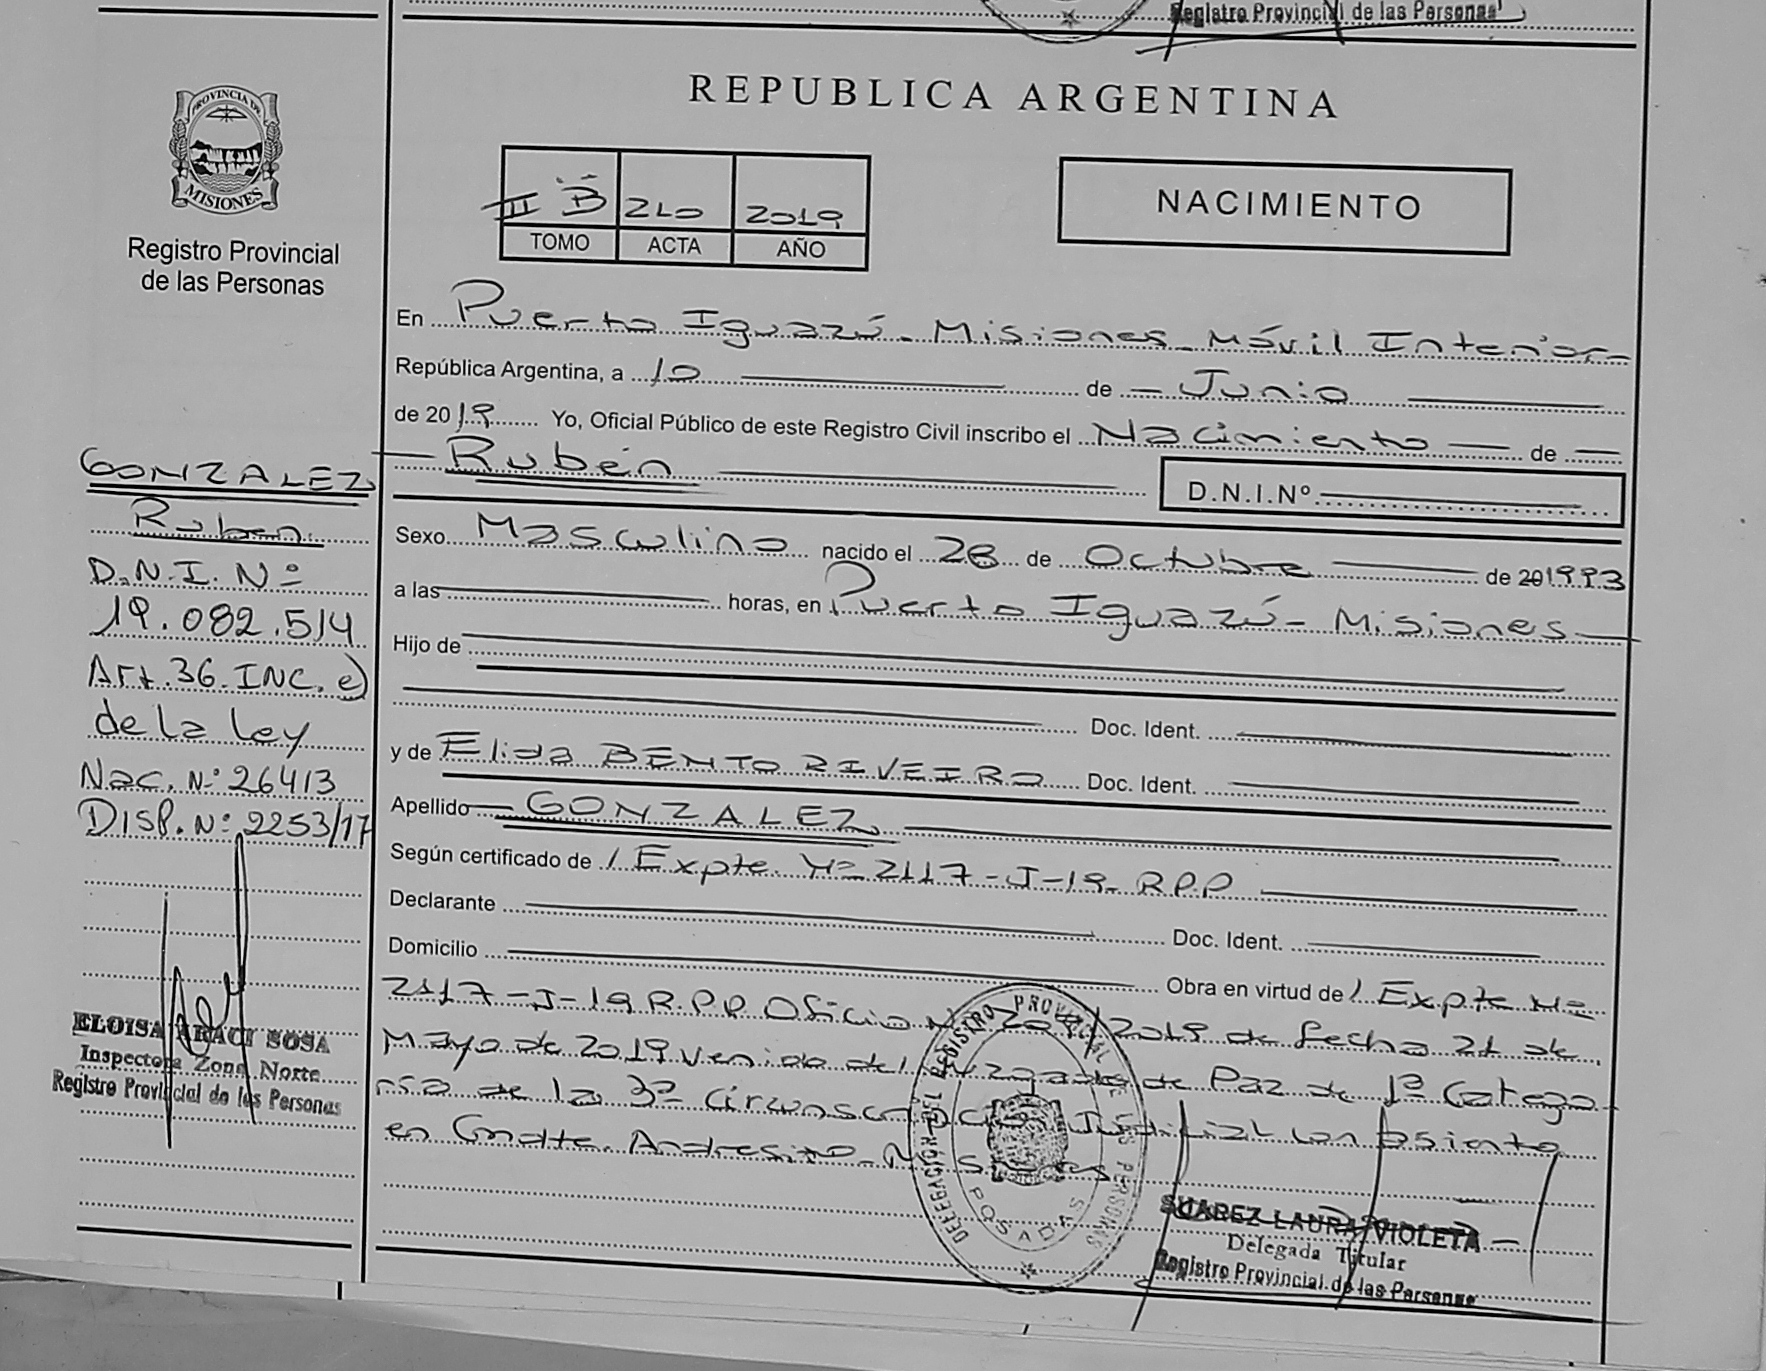 Registro Provincial de las Personas
REPUBLICA ARGENTINA
PROVINCIA DE
MISIONES
Registro Provincial
de las Personas
II B 210 2019
TOMO ACTA AÑO
NACIMIENTO
En Puerto Iguazú - Misiones - Móvil Interior
República Argentina, a 10 de Junio
de 2019 Yo, Oficial Público de este Registro Civil inscribo el Nacimiento de
Rubén
D.N.I.Nº
Sexo Masculino nacido el 28 de Octubre de 201993
a las horas, en Puerto Iguazú - Misiones
Hijo de
Doc. Ident.
y de Elida BENTO RIVEIRO Doc. Ident.
Apellido GONZALEZ
Según certificado de / Expte. Nº 2117-J-19- R.P.P
Declarante Doc. Ident.
Domicilio Obra en virtud de / Expte Nº
2117-J-19 R.P.P Oficio Nº /2019 de fecha 21 de
Mayo de 2019 venido del Juzgado de Paz de 1ª Catego-
ría de la 3ª Circunscripción Judicial con asiento
en Cmdte. Andresito - Misiones
GONZALEZ
Ruben
D.N.I. Nº
19.082.514
Art. 36. INC. e)
de la Ley
Nac. Nº 26413
DISP. Nº 2253/17
ELOISA ARACI SOSA
Inspectora Zona Norte
Registro Provincial de las Personas
DELEGACION DEL REGISTRO PROVINCIAL DE LAS PERSONAS
POSADAS
SUAREZ LAURA VIOLETA
Delegada Titular
Registro Provincial de las Personas